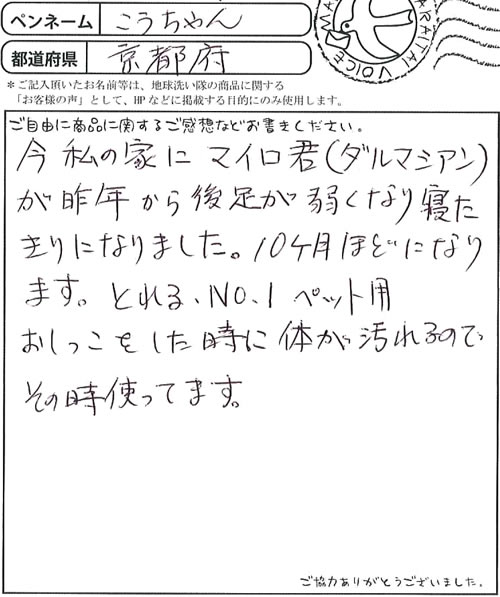 ペンネーム こうちゃん
都道府県 京都府
＊ご記入頂いたお名前等は、地球洗い隊の商品に関する
「お客様の声」として、HPなどに掲載する目的にのみ使用します。
ご自由に商品に関するご感想などお書きください。
今 私の家に マイロ君(ダルマシアン)
が 昨年 から 後足が 弱くなり 寝た
きりになりました。10ヶ月ほどになり
ます。とれる、NO.1 ペット用
おしっこをした時に 体が 汚れるので
その時使ってます。
ご協力ありがとうございました。
VOICE